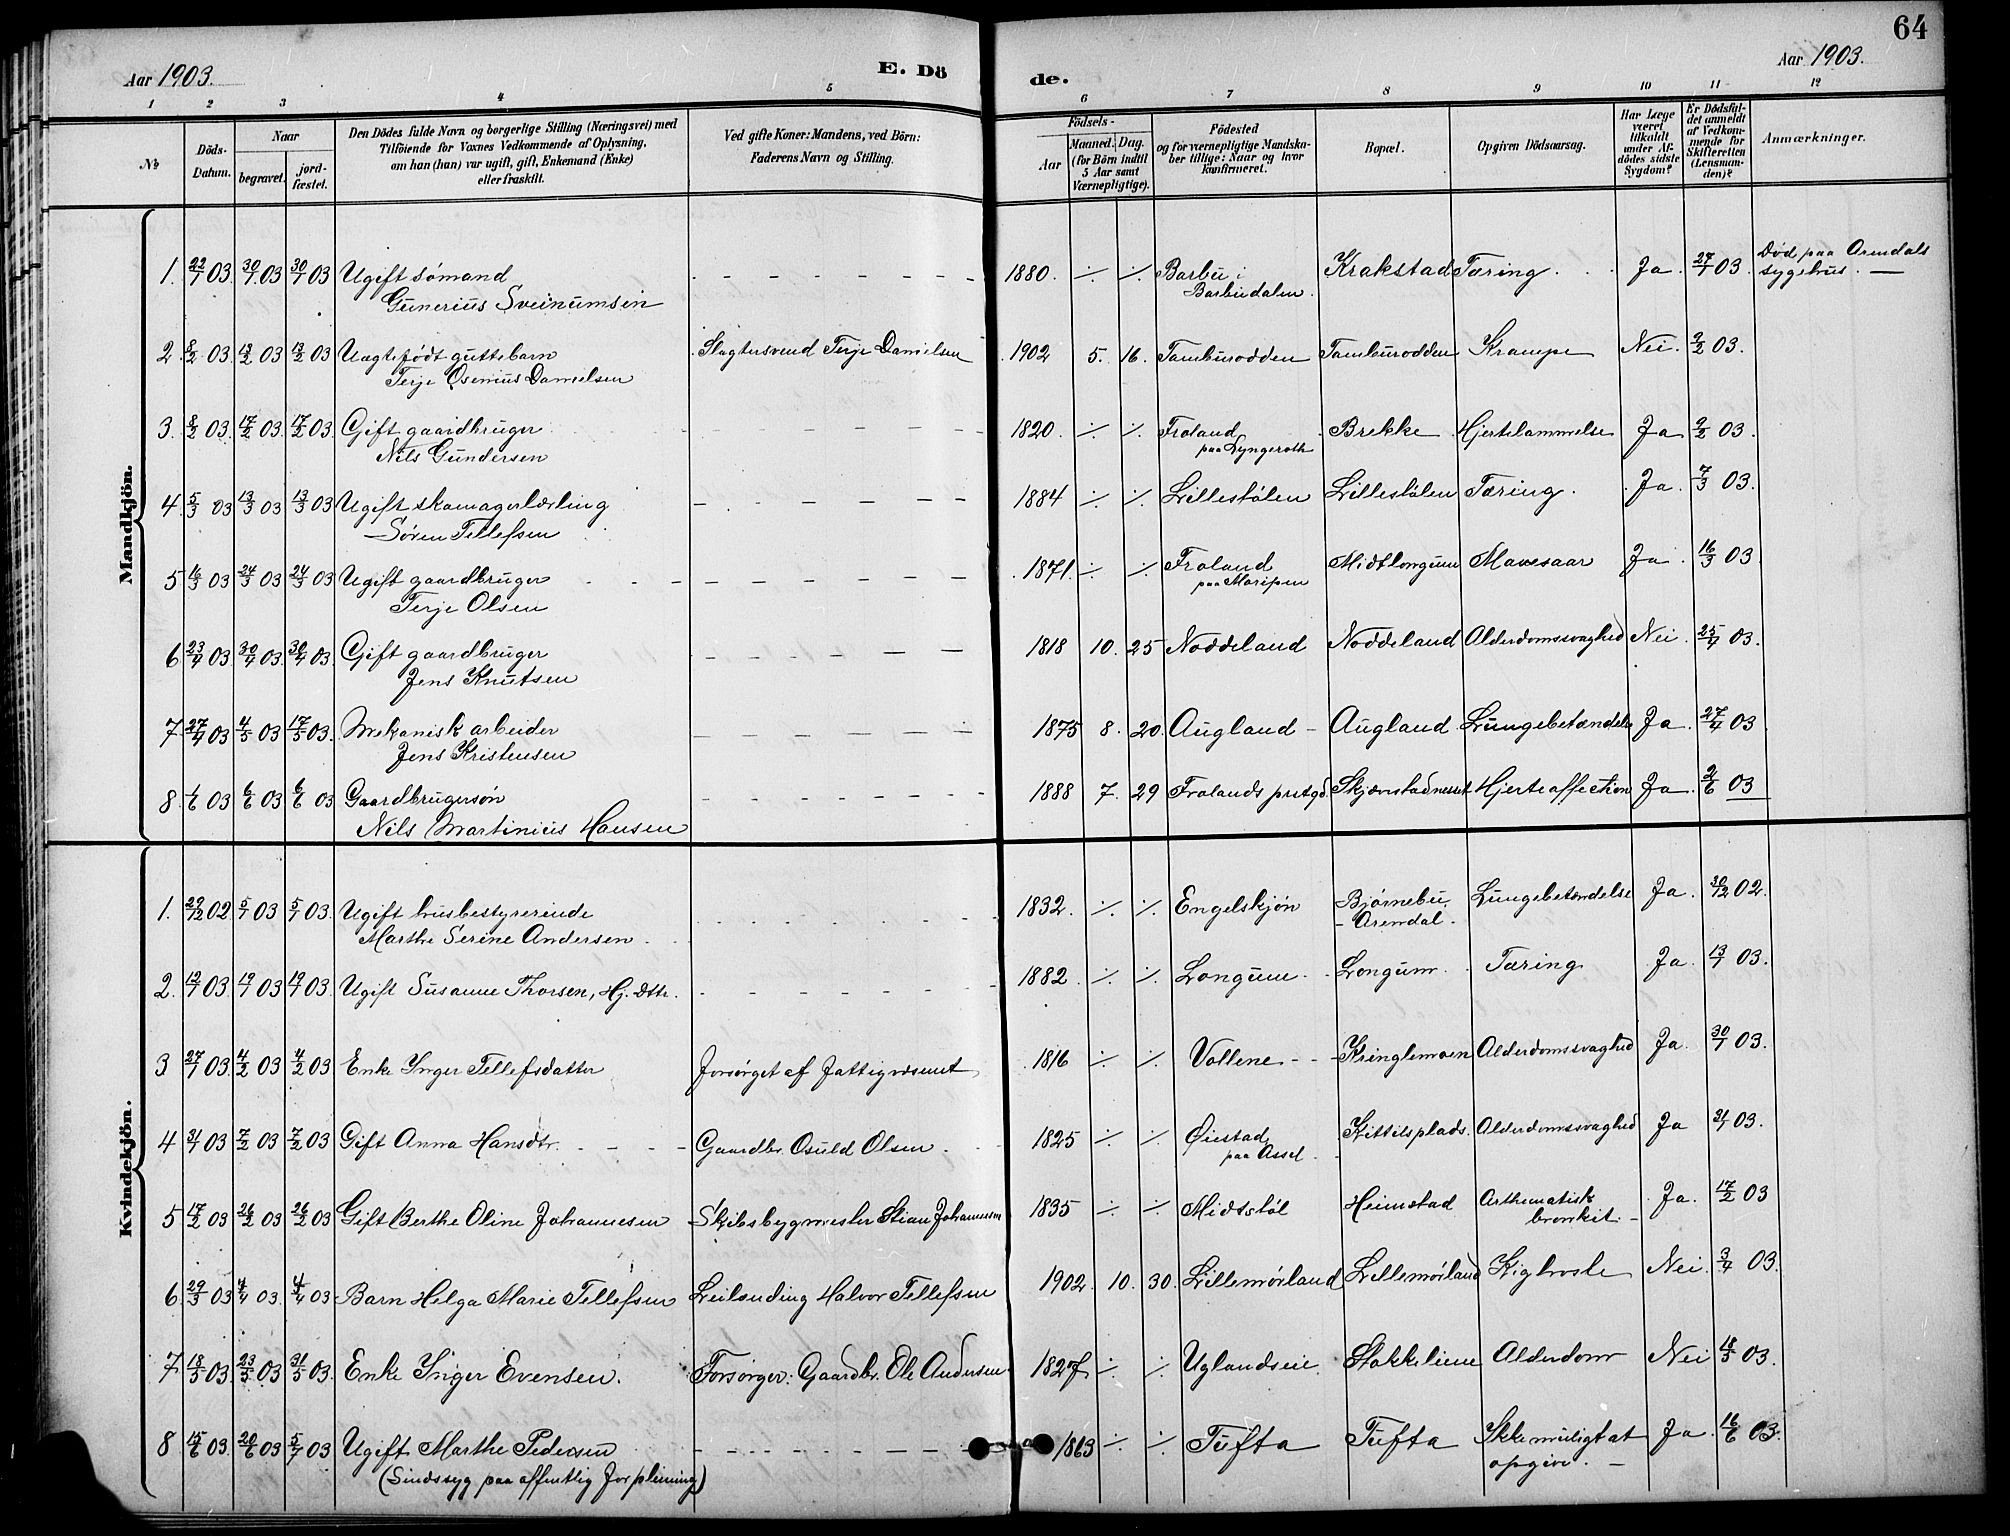 64
Aar 1903. E. Dö de. Aar 1903.
1 2 3 4 5 6 7 8 9 10 11 12
No
Döds-Datum.
Naar
begravet.
jord-fæstet.
Den Dödes fulde Navn og borgerlige Stilling (Næringsvei) med
Tilföiende for Voxnes Vedkommende af Oplysning,
om han (hun) var ugift, gift, Enkemand (Enke)
eller fraskilt.
Ved gifte Koner: Mandens, ved Börn:
Faderens Navn og Stilling.
Födsels-
Aar
Maaned. Dag.
(for Börn indtil
5 Aar samt
Værnepligtige).
Födested
og for værnepligtige Mandska-
ber tillige: Naar og hvor
konfirmeret.
Bopæl.
Opgiven Dödsaarsag.
Har Læge
været
tilkaldt
under Af-
dödes sidste
Sygdom?
Er Dödsfal-
det anmeldt
af Vedkom-
mende for
Skifteretten
(Lensman-
den)?
Anmærkninger.
Mandkjön.
1. 22/1 03 30/1 03 30/1 03 Ugift sømand 1880. ./. ./. Barbu i Krakstad Tæring. Ja. 27/1 03. Død paa Arendals
Gunerius Sveinumsen Barbudalen. sygehus. —
2. 8/2 03. 13/2 03 13/2 03 Uægtefødt guttebarn Slagtersvend Terje Danielsen 1902 5. 16. Tamburodden Tamburodden Krampe Nei. 9/2 03.
Terje Osenius Danielsen
3. 8/2 03. 17/2 03. 17/2 03 Gift gaardbruger 1820. ./. ./. Froland Brekke Hjertelammelse Ja 9/2 03.
Nils Gundersen paa Lyngeroth
4. 5/3 03 13/3 03 13/3 03 Ugift skomagerlærling 1884 ./. ./. Lillestølen Lillestølen Tæring. Ja. 7/3 03.
Søren Tellefsen
5 16/3 03 24/3 03 24/3 03 Ugift gaardbruger 1871. ./. ./. Froland Midtlongum Mavesaar Ja. 16/3 03
Terje Olsen paa Moripen
6 23/4 03 30/4 03. 30/4 03. Gift gaardbruger 1818 10. 25 Noddeland Noddeland Alderdomssvaghed Nei. 25/4 03.
Jens Knutsen
7 27/4 03 4/5 03 17/5 03. Mekanisk arbeider 1875 8. 20. Augland Augland Lungebetændelse Ja. 27/4 03
Jens Kristensen
8. 1/6 03 6/6 03 6/6 03 Gaardbrugersøn 1888 7. 29 Frolands prstgd. Skjævstadnesset Hjerteaffection Ja. 2/6 03
Nils Martinius Hansen
Kvindekjön.
1. 29/12 02 5/1 03 5/1 03. Ugift husbestyrerinde 1832. ./. ./. Engelskjøn Bjørnebu Lungebetændelse Ja. 30/12 02.
Marthe Serine Andersen. Arendal.
2. 12/1 03. 19/1 03 19/1 03. Ugift Susanne Thorsen, Hj. dttr. 1882. ./. ./. Longum Longum. Tæring Ja. 13/1 03.
3 27/1 03. 4/2 03 4/2 03 Enke Inger Tellefsdatter Forsørget af Fattigvæsenet 1816 ./. ./. Vollene Kringlemoen Alderdomssvaghed Ja. 30/1 03.
4 31/1 03 7/2 03 7/2 03 Gift Anna Hansdtr. Gaardbr. Osuld Olsen 1825 ./. ./. Øiestad Kittilsplads Alderdomssvaghed Ja 31/1 03.
paa Assel
5 17/2 03 26/2 03 26/2 03 Gift Berthe Oline Johannesen Skibsbygmester Stian Johannesen 1835 ./. ./. Midtstøl Heimstad Asthmatisk Ja. 17/2 03
bronkit.
6. 29/3 03 4/4 03. 4/4 03 Barn Helga Marie Tellefsen Leilænding Halvor Tellefsen 1902. 10. 30. Lillemøiland Lillemøiland Kighoste Nei. 3/4 03.
7 18/5 03. 23/5 03 31/5 03. Enke Inger Evensen. Forsørger: Gaardbr. Ole Andersen 1827 ./. ./. Uglandseie Stokkeliene Alderdom Nei 18/5 03.
8 15/6 03. 20/6 03 5/7 03 Ugift Marthe Pedersen 1863 ./. ./. Tufta Tufta Ikke muligt at Ja. 16/6 03.
(Sindssyg paa offentlig Forpleining) opgive. —